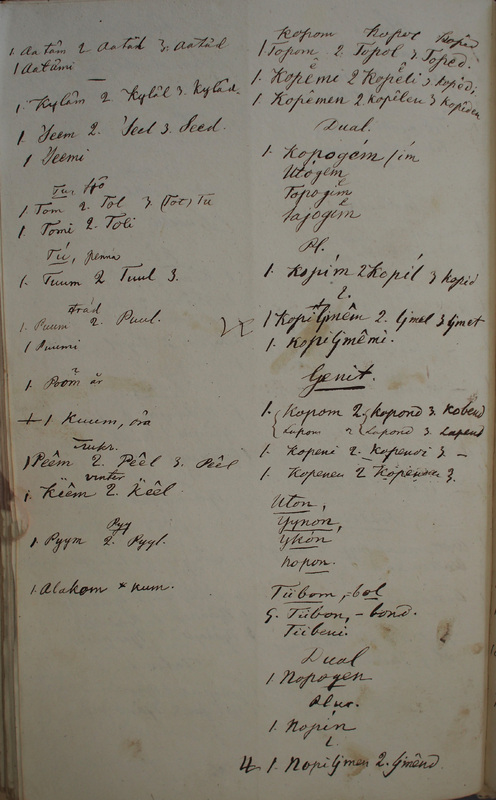 1 Aatâm 2. Aatâd 3. Aatâd
1 Aatâmi
1. Kylâm 2. Kylâl 3. Kylâd
1. Jeem 2. Jeel 3. Jeed.
1 Jeemi
Tu,
1. Tom 2. Tol 3. (Tot) Tu
1. Tomi 2. Toli
Tú, penna
1. Tuum 2 Tuul 3.
1. Puum 2. Puul.
1 Puumi
1. Poom år
+ 1 Kuum, öra
1 Pêêm 2. Pêêl 3. Pêêl
vinter
1. Kêêm 2. Kêêl
Pyy
1. Pyym 2. Pyyl.
1. Alakom * kum.
Kopom
1 Topom 2. Topol 3. Toped.
1. Kopêmi 2 kopêli 3. kopêdi
1 Kopêmen 2 kopêleu 3 kopêdeu
Dual.
1. Kopogém /im
Utógem
Topogim
Sajogim
Pl.
1. Kopím 2 kopíl 3 kopid
2.
1 Kopiljmêm 2. ljmel 3 ljmet
1. Kopiljmêmi.
Genit.
1. Kopom 2 kopond 3. kobend
Lapom 2 Lapond 3. Lapend
1. Kopeni 2. Kopendi 3. –
1. Kopeneu 2 Kopendeu 3.
Uton,
Yynon,
Ykón
nopon.
Tiibom, -bol
G. Tiibon, - bond.
Tiibeni.
Dual
1 Nopogen
Plur.
1. Nopin
2.
4 1. Nopiljmen 2. ljmênd.